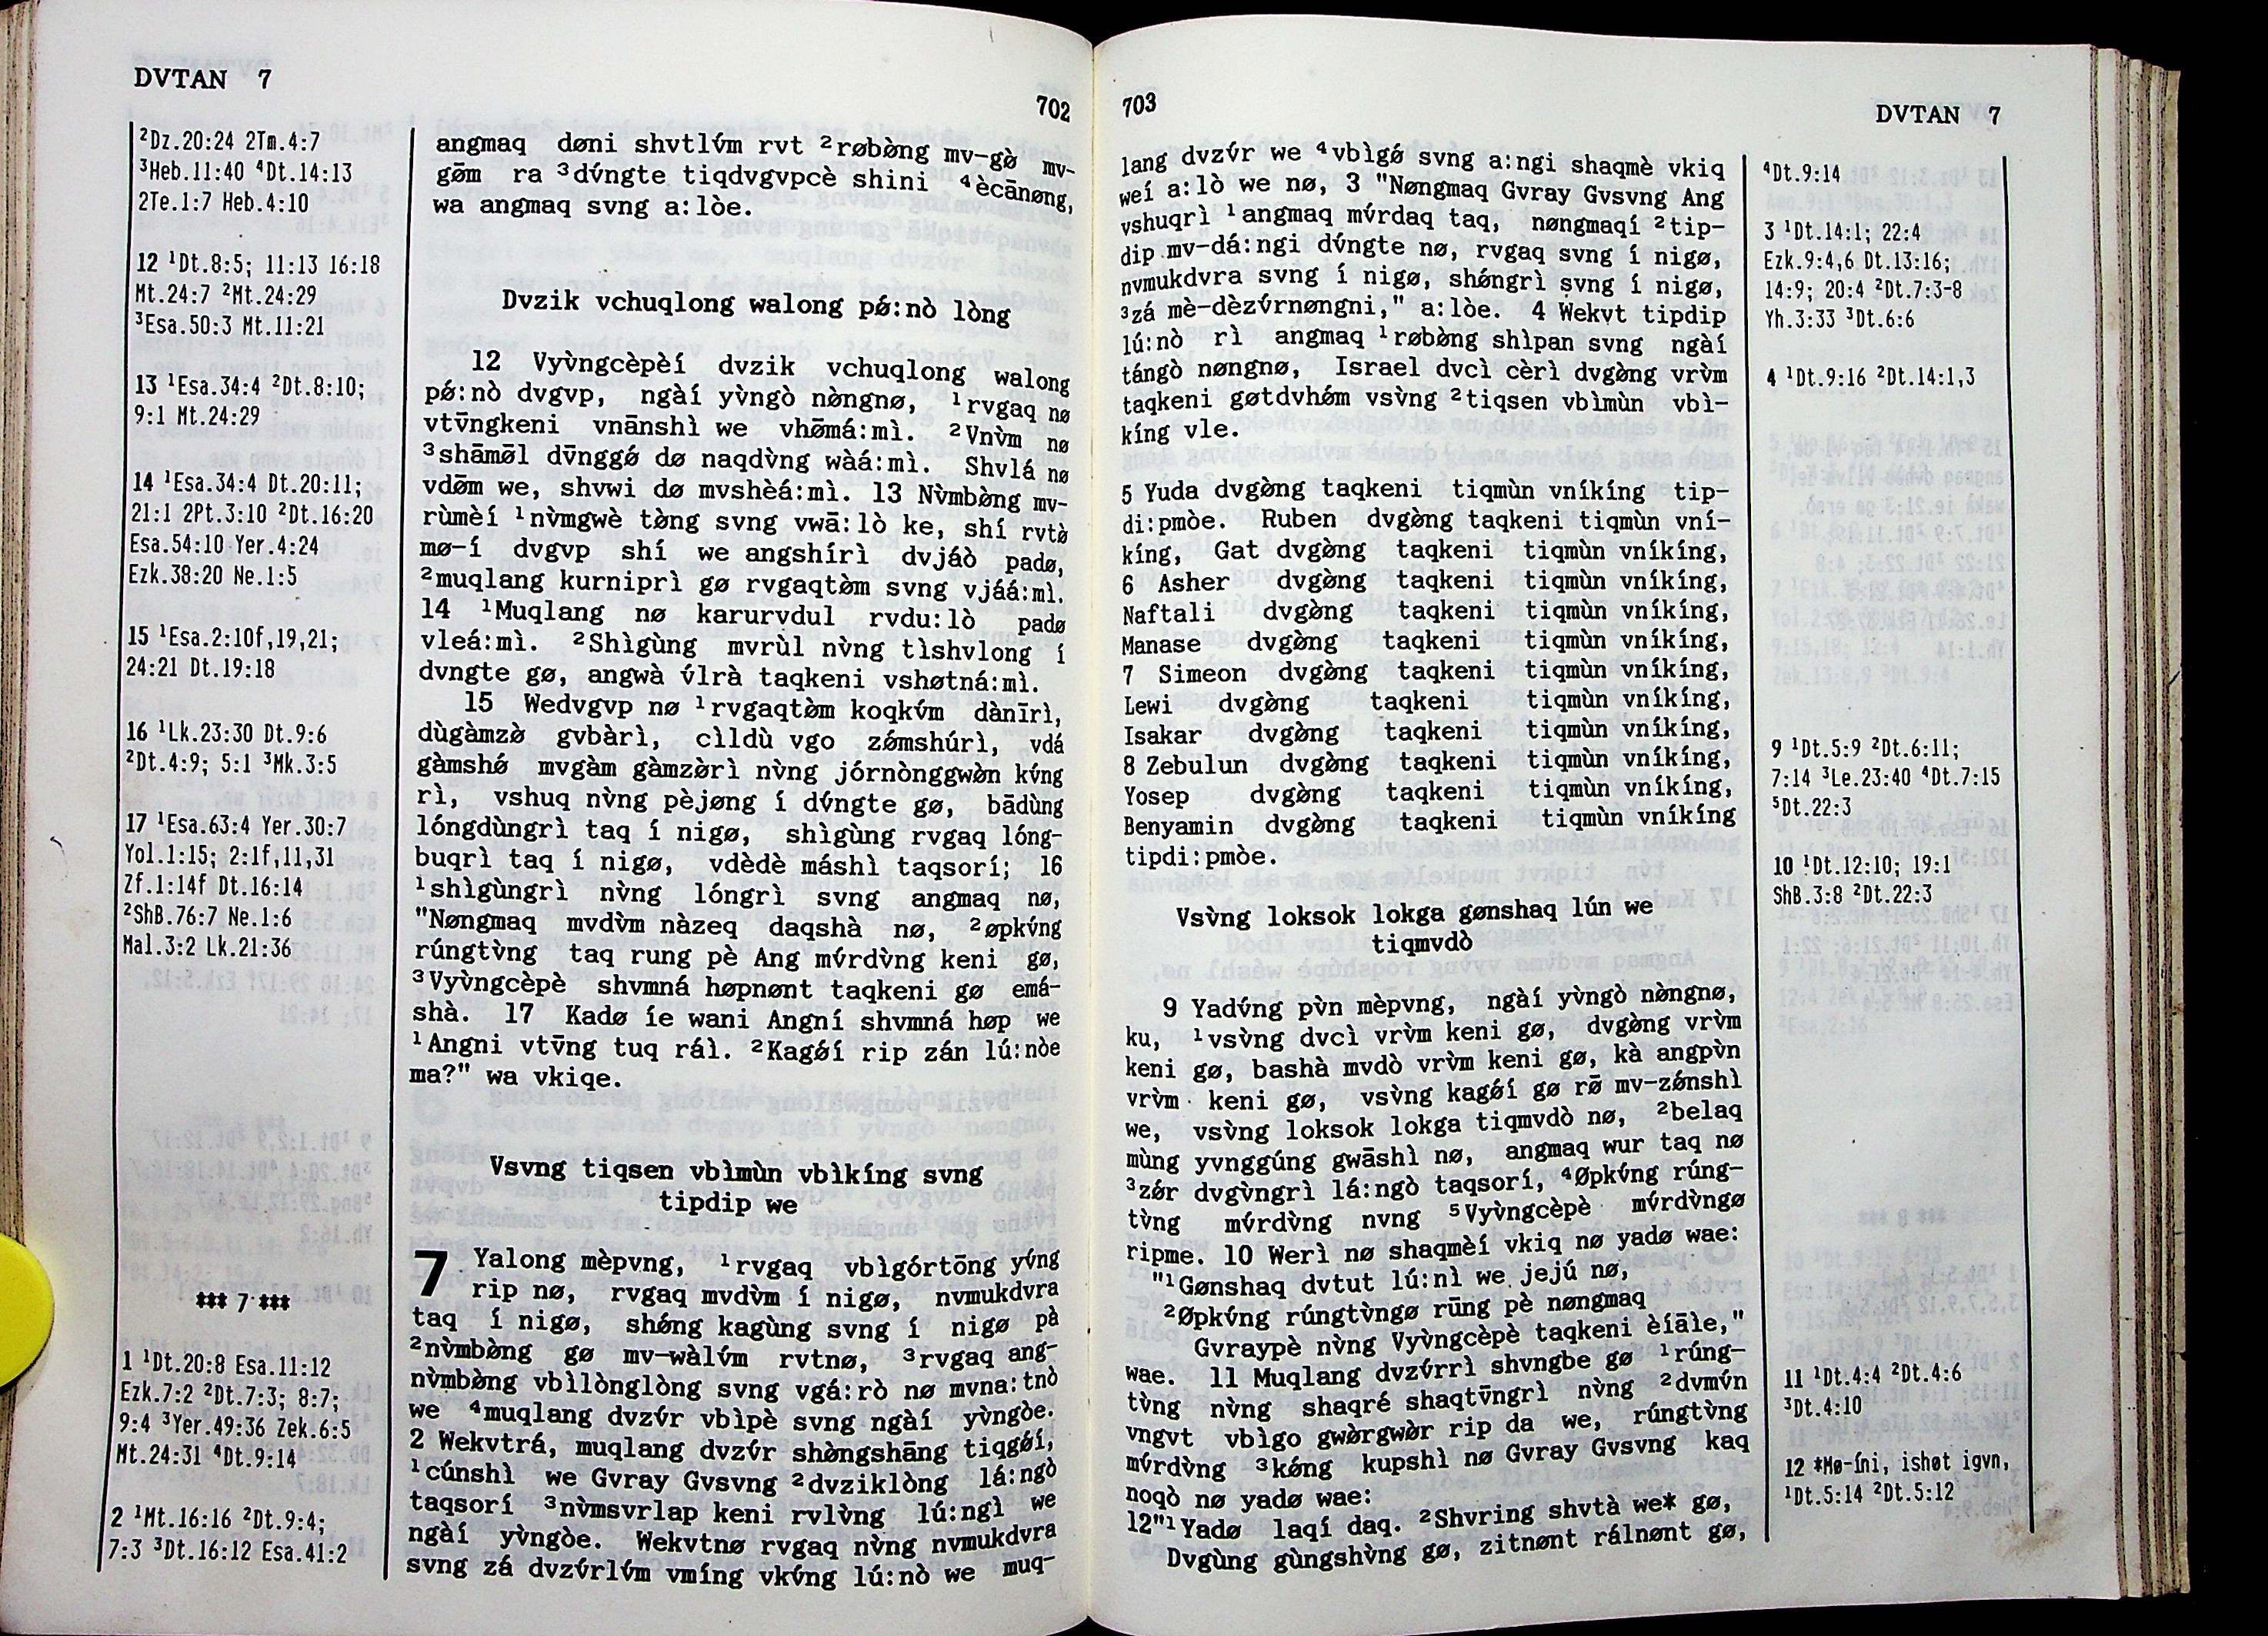 DVTAN 7
702
²Dz.20:24 2Tm.4:7
³Heb.11:40 ⁴Dt.14:13
2Te.1:7 Heb.4:10
12 ¹Dt.8:5; 11:13 16:18
Mt.24:7 ²Mt.24:29
³Esa.50:3 Mt.11:21
13 ¹Esa.34:4 ²Dt.8:10;
9:1 Mt.24:29
14 ¹Esa.34:4 Dt.20:11;
21:1 2Pt.3:10 ²Dt.16:20
Esa.54:10 Yer.4:24
Ezk.38:20 Ne.1:5
15 ¹Esa.2:10f,19,21;
24:21 Dt.19:18
16 ¹Lk.23:30 Dt.9:6
²Dt.4:9; 5:1 ³Mk.3:5
17 ¹Esa.63:4 Yer.30:7
Yol.1:15; 2:1f,11,31
Zf.1:14f Dt.16:14
²ShB.76:7 Ne.1:6
Mal.3:2 Lk.21:36
*** 7 ***
1 ¹Dt.20:8 Esa.11:12
Ezk.7:2 ²Dt.7:3; 8:7;
9:4 ³Yer.49:36 Zek.6:5
Mt.24:31 ⁴Dt.9:14
2 ¹Mt.16:16 ²Dt.9:4;
7:3 ³Dt.16:12 Esa.41:2
angmaq døni shvtlv́m rvt ²røbø̀ng mv-gø̀ mv-
gø̄m ra ³dv́ngte tiqdvgvpcè shini ⁴ècānøng,
wa angmaq svng a:lòe.
Dvzik vchuqlong walong pǿ:nò lòng
12 Vyv̀ngcèpèí dvzik vchuqlong walong
pǿ:nò dvgvp, ngàí yv̀ngò nø̀ngnø, ¹rvgaq nø
vtv̄ngkeni vnānshì we vhø̄má:mì. ²Vnv̀m nø
³shāmø̄l dv̄nggǿ dø naqdv̀ng wàá:mì. Shvlá nø
vdø̄m we, shvwi dø mvshèá:mì. 13 Nv̀mbø̀ng mv-
rùmèí ¹nv̀mgwè tø̀ng svng vwā:lò ke, shí rvtø̀
mø-í dvgvp shí we angshírì dvjáò padø,
²muqlang kurniprì gø rvgaqtø̀m svng vjáá:mì.
14 ¹Muqlang nø karurvdul rvdu:lò padø
vleá:mì. ²Shìgùng mvrùl nv̀ng tìshvlong í
dvngte gø, angwà v́lrà taqkeni vshøtná:mì.
15 Wedvgvp nø ¹rvgaqtø̀m koqkv́m dànīrì,
dùgàmzø̀ gvbàrì, cìldù vgo zǿmshúrì, vdá
gàmshǿ mvgàm gàmzø̀rì nv̀ng jórnònggwø̀n kv́ng
rì, vshuq nv̀ng pèjøng í dv́ngte gø, bādùng
lóngdùngrì taq í nigø, shìgùng rvgaq lóng-
buqrì taq í nigø, vdèdè máshì taqsorí; 16
¹shìgùngrì nv̀ng lóngrì svng angmaq nø,
"Nøngmaq mvdv̀m nàzeq daqshà nø, ²øpkv́ng
rúngtv̀ng taq rung pè Ang mv́rdv̀ng keni gø,
³Vyv̀ngcèpè shvmná høpnønt taqkeni gø emá-
shà. 17 Kadø íe wani Angní shvmná høp we
¹Angni vtv̄ng tuq ráì. ²Kagǿí rip zán lú:nòe
ma?" wa vkiqe.
Vsvng tiqsen vbìmùn vbìkíng svng
tipdip we
7 Yalong mèpvng, ¹rvgaq vbìgórtōng yv́ng
rip nø, rvgaq mvdv̀m í nigø, nvmukdvra
taq í nigø, shǿng kagùng svng í nigø pà
²nv̀mbø̀ng gø mv-wàlv́m rvtnø, ³rvgaq ang-
nv̀mbø̀ng vbìlònglòng svng vgá:rò nø mvna:tnò
we ⁴muqlang dvzv́r vbìpè svng ngàí yv̀ngòe.
2 Wekvtrá, muqlang dvzv́r shø̀ngshāng tiqgǿí,
¹cúnshì we Gvray Gvsvng ²dvziklòng lá:ngò
taqsorí ³nv̀msvrlap keni rvlv̀ng lú:ngì we
ngàí yv̀ngòe. Wekvtnø rvgaq nv̀ng nvmukdvra
svng zá dvzv́rlv́m vmíng vkv́ng lú:nò we muq-
703
DVTAN 7
lang dvzv́r we ⁴vbìgǿ svng a:ngi shaqmè vkiq
weí a:lò we nø, 3 "Nøngmaq Gvray Gvsvng Ang
vshuqrì ¹angmaq mv́rdaq taq, nøngmaqí ²tip-
dip mv-dá:ngi dv́ngte nø, rvgaq svng í nigø,
nvmukdvra svng í nigø, shǿngrì svng í nigø,
³zá mè-dèzv́rnøngni," a:lòe. 4 Wekvt tipdip
lú:nò rì angmaq ¹røbø̀ng shìpan svng ngàí
tángò nøngnø, Israel dvcì cèrì dvgø̀ng vrv̀m
taqkeni gøtdvhǿm vsv̀ng ²tiqsen vbìmùn vbì-
kíng vle.
5 Yuda dvgø̀ng taqkeni tiqmùn vníkíng tip-
di:pmòe. Ruben dvgø̀ng taqkeni tiqmùn vní-
kíng, Gat dvgø̀ng taqkeni tiqmùn vníkíng,
6 Asher dvgø̀ng taqkeni tiqmùn vníkíng,
Naftali dvgø̀ng taqkeni tiqmùn vníkíng,
Manase dvgø̀ng taqkeni tiqmùn vníkíng,
7 Simeon dvgø̀ng taqkeni tiqmùn vníkíng,
Lewi dvgø̀ng taqkeni tiqmùn vníkíng,
Isakar dvgø̀ng taqkeni tiqmùn vníkíng,
8 Zebulun dvgø̀ng taqkeni tiqmùn vníkíng,
Yosep dvgø̀ng taqkeni tiqmùn vníkíng,
Benyamin dvgø̀ng taqkeni tiqmùn vníkíng
tipdi:pmòe.
Vsv̀ng loksok lokga gønshaq lún we
tiqmvdò
9 Yadv́ng pv̀n mèpvng, ngàí yv̀ngò nø̀ngnø,
ku, ¹vsv̀ng dvcì vrv̀m keni gø, dvgø̀ng vrv̀m
keni gø, bashà mvdò vrv̀m keni gø, kà angpv̀n
vrv̀m keni gø, vsv̀ng kagǿí gø rø̄ mv-zǿnshì
we, vsv̀ng loksok lokga tiqmvdò nø, ²belaq
mùng yvnggúng gwāshì nø, angmaq wur taq nø
³zǿr dvgv̀ngrì lá:ngò taqsorí, ⁴Øpkv́ng rúng-
tv̀ng mv́rdv̀ng nvng ⁵Vyv̀ngcèpè mv́rdv̀ngø
ripme. 10 Werì nø shaqmèí vkiq nø yadø wae:
"¹Gønshaq dvtut lú:nì we jejú nø,
²Øpkv́ng rúngtv̀ngø rūng pè nøngmaq
Gvraypè nv̀ng Vyv̀ngcèpè taqkeni èíāìe,"
wae. 11 Muqlang dvzv́rrì shvngbe gø ¹rúng-
tv̀ng nv̀ng shaqré shaqtv̄ngrì nv̀ng ²dvmv́n
vngvt vbìgo gwø̀rgwø̀r rip da we, rúngtv̀ng
mv́rdv̀ng ³kǿng kupshì nø Gvray Gvsvng kaq
noqò nø yadø wae:
12"¹Yadø laqí daq. ²Shvring shvtà we* gø,
Dvgùng gùngshv̀ng gø, zitnønt rálnønt gø,
⁴Dt.9:14
3 ¹Dt.14:1; 22:4
Ezk.9:4,6 Dt.13:16;
14:9; 20:4 ²Dt.7:3-8
Yh.3:33 ³Dt.6:6
4 ¹Dt.9:16 ²Dt.14:1,3
9 ¹Dt.5:9 ²Dt.6:11;
7:14 ³Le.23:40 ⁴Dt.7:15
⁵Dt.22:3
10 ¹Dt.12:10; 19:1
ShB.3:8 ²Dt.22:3
11 ¹Dt.4:4 ²Dt.4:6
³Dt.4:10
12 *Mø-íni, ishøt igvn,
¹Dt.5:14 ²Dt.5:12